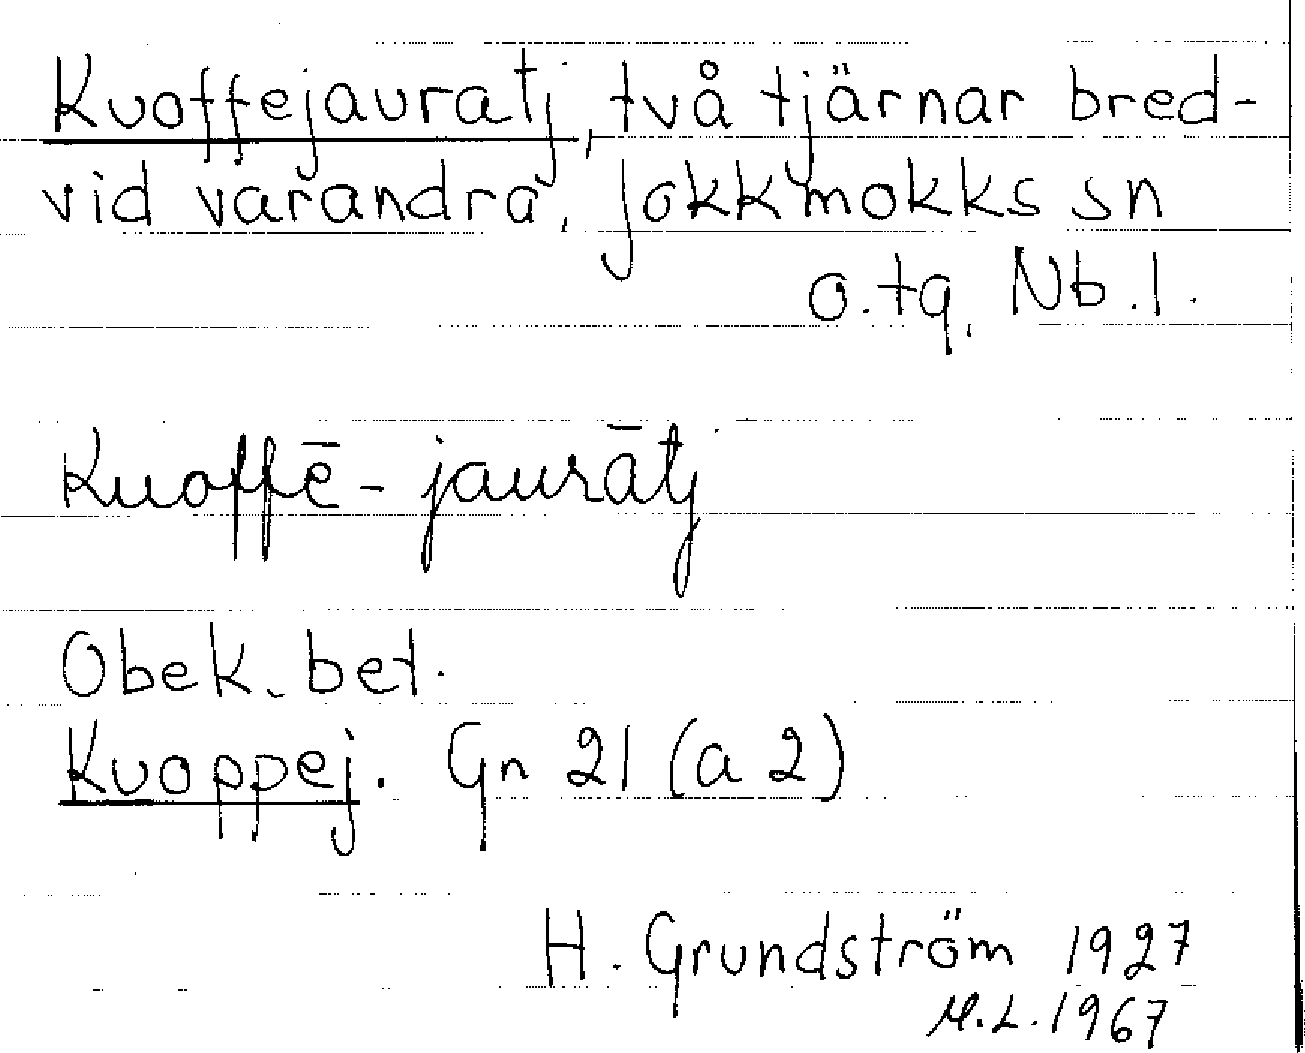 Kuoffejauratj, två tjärnar bred-
vid varandra, Jokkmokks sn
o. tg, Nb. l.
Kuoffē-jaurātj
Obek. bet.
Kuoppej. Gn 21 (a 2)
H. Grundström 1927
M.L. 1967